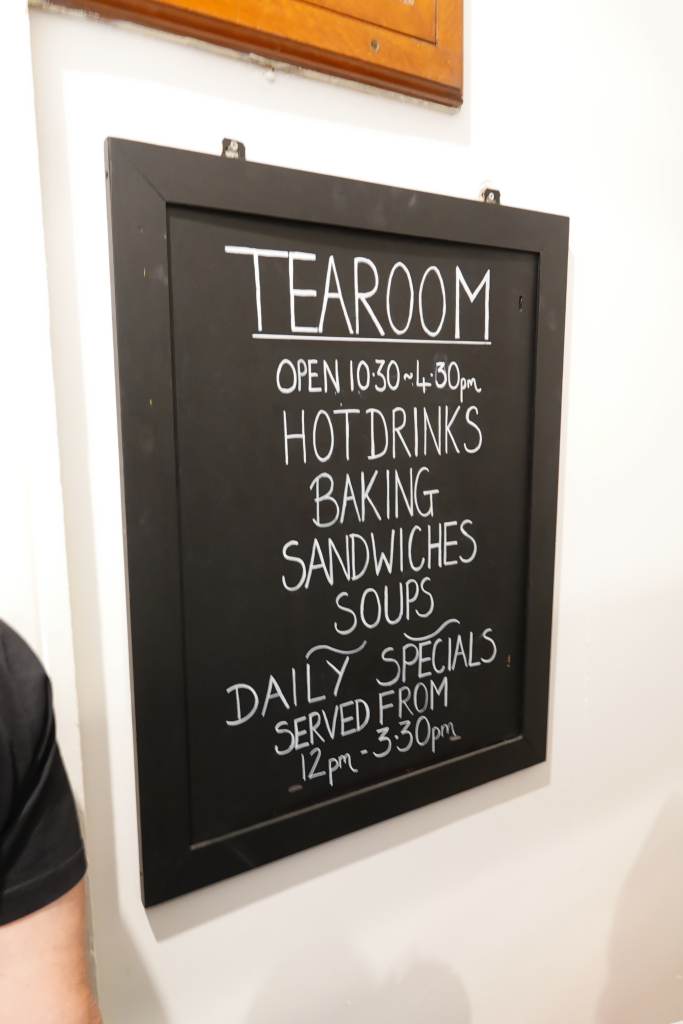 TEAROOM
OPEN 10·30~4·30pm
HOT DRINKS
BAKING
SANDWICHES
SOUPS
DAILY SPECIALS
SERVED FROM
12pm - 3·30pm